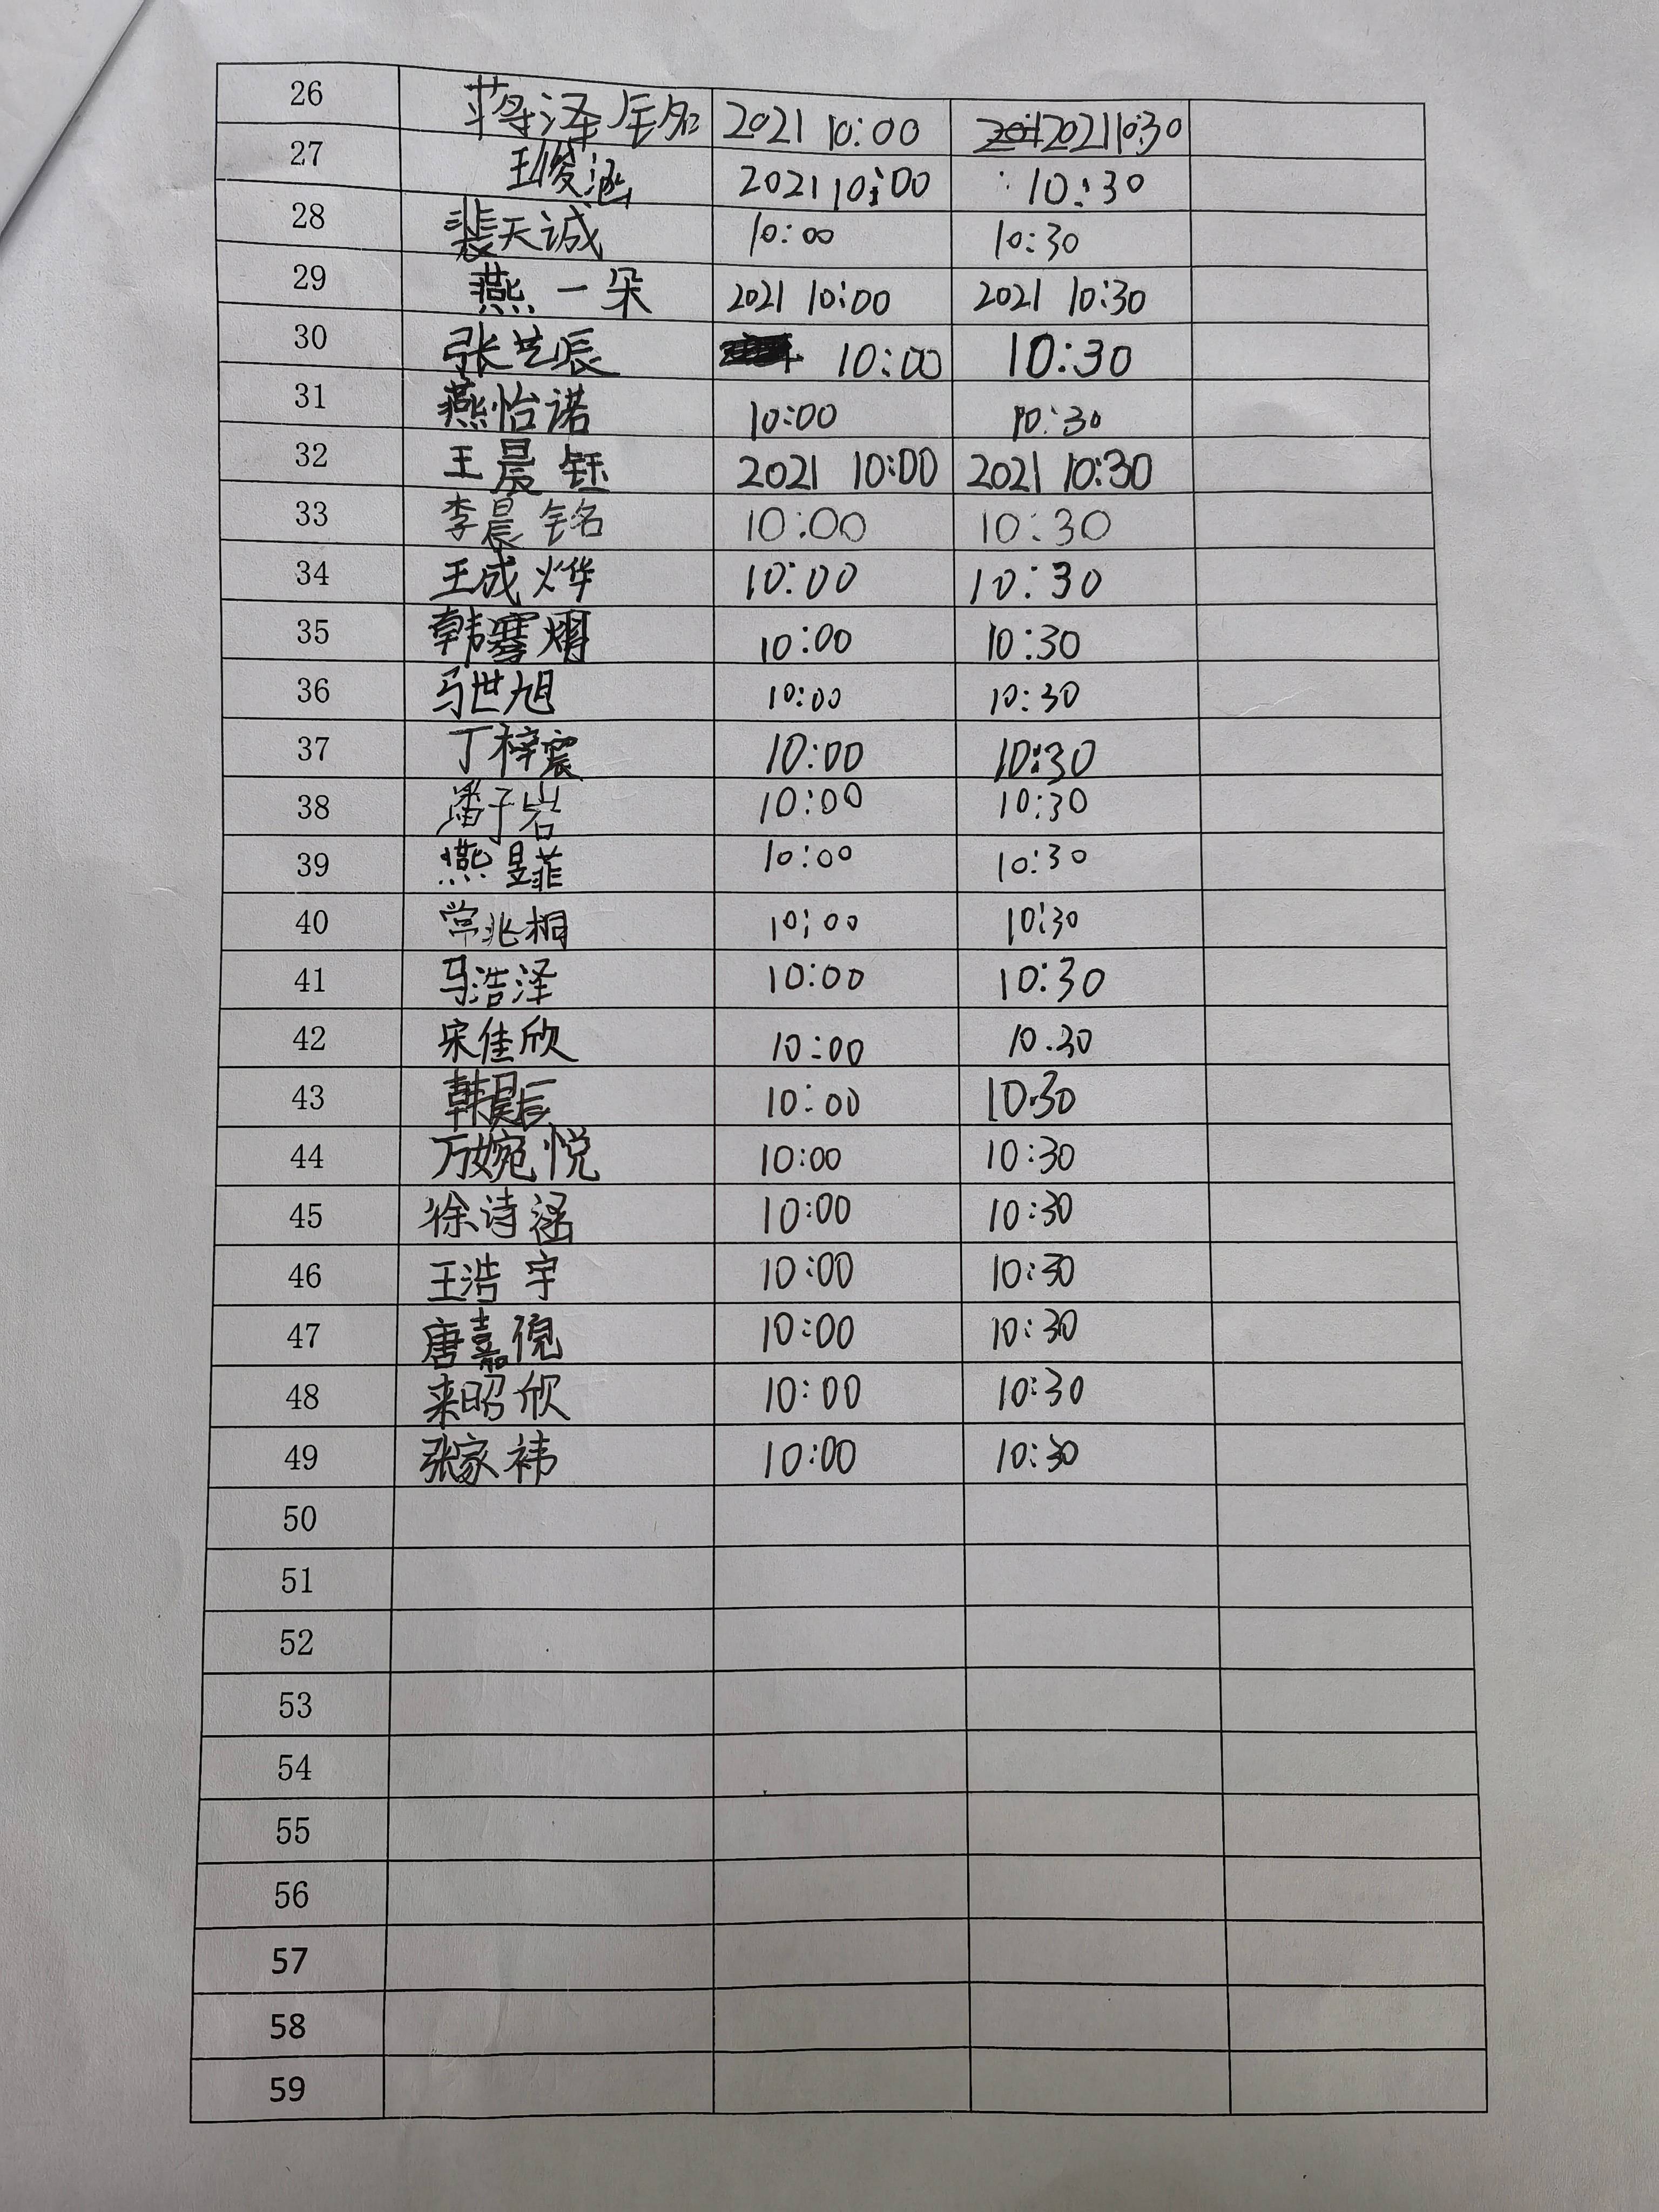 26 蒋泽铭 2021 10:00 2021 10:30
27 王俊涵 2021 10:00 10:30
28 裴天诚 10:00 10:30
29 燕一朵 2021 10:00 2021 10:30
30 张艺辰 10:00 10:30
31 燕怡诺 10:00 10:30
32 王晨钰 2021 10:00 2021 10:30
33 李晨铭 10:00 10:30
34 王成烨 10:00 10:30
35 韩骞熠 10:00 10:30
36 马世旭 10:00 10:30
37 丁梓宸 10:00 10:30
38 潘子岩 10:00 10:30
39 燕昱菲 10:00 10:30
40 常兆桐 10:00 10:30
41 马浩泽 10:00 10:30
42 宋佳欣 10:00 10.30
43 韩晨 10:00 10:30
44 万婉悦 10:00 10:30
45 徐诗涵 10:00 10:30
46 王浩宇 10:00 10:30
47 唐嘉倪 10:00 10:30
48 来昭欣 10:00 10:30
49 张家祎 10:00 10:30
50
51
52
53
54
55
56
57
58
59